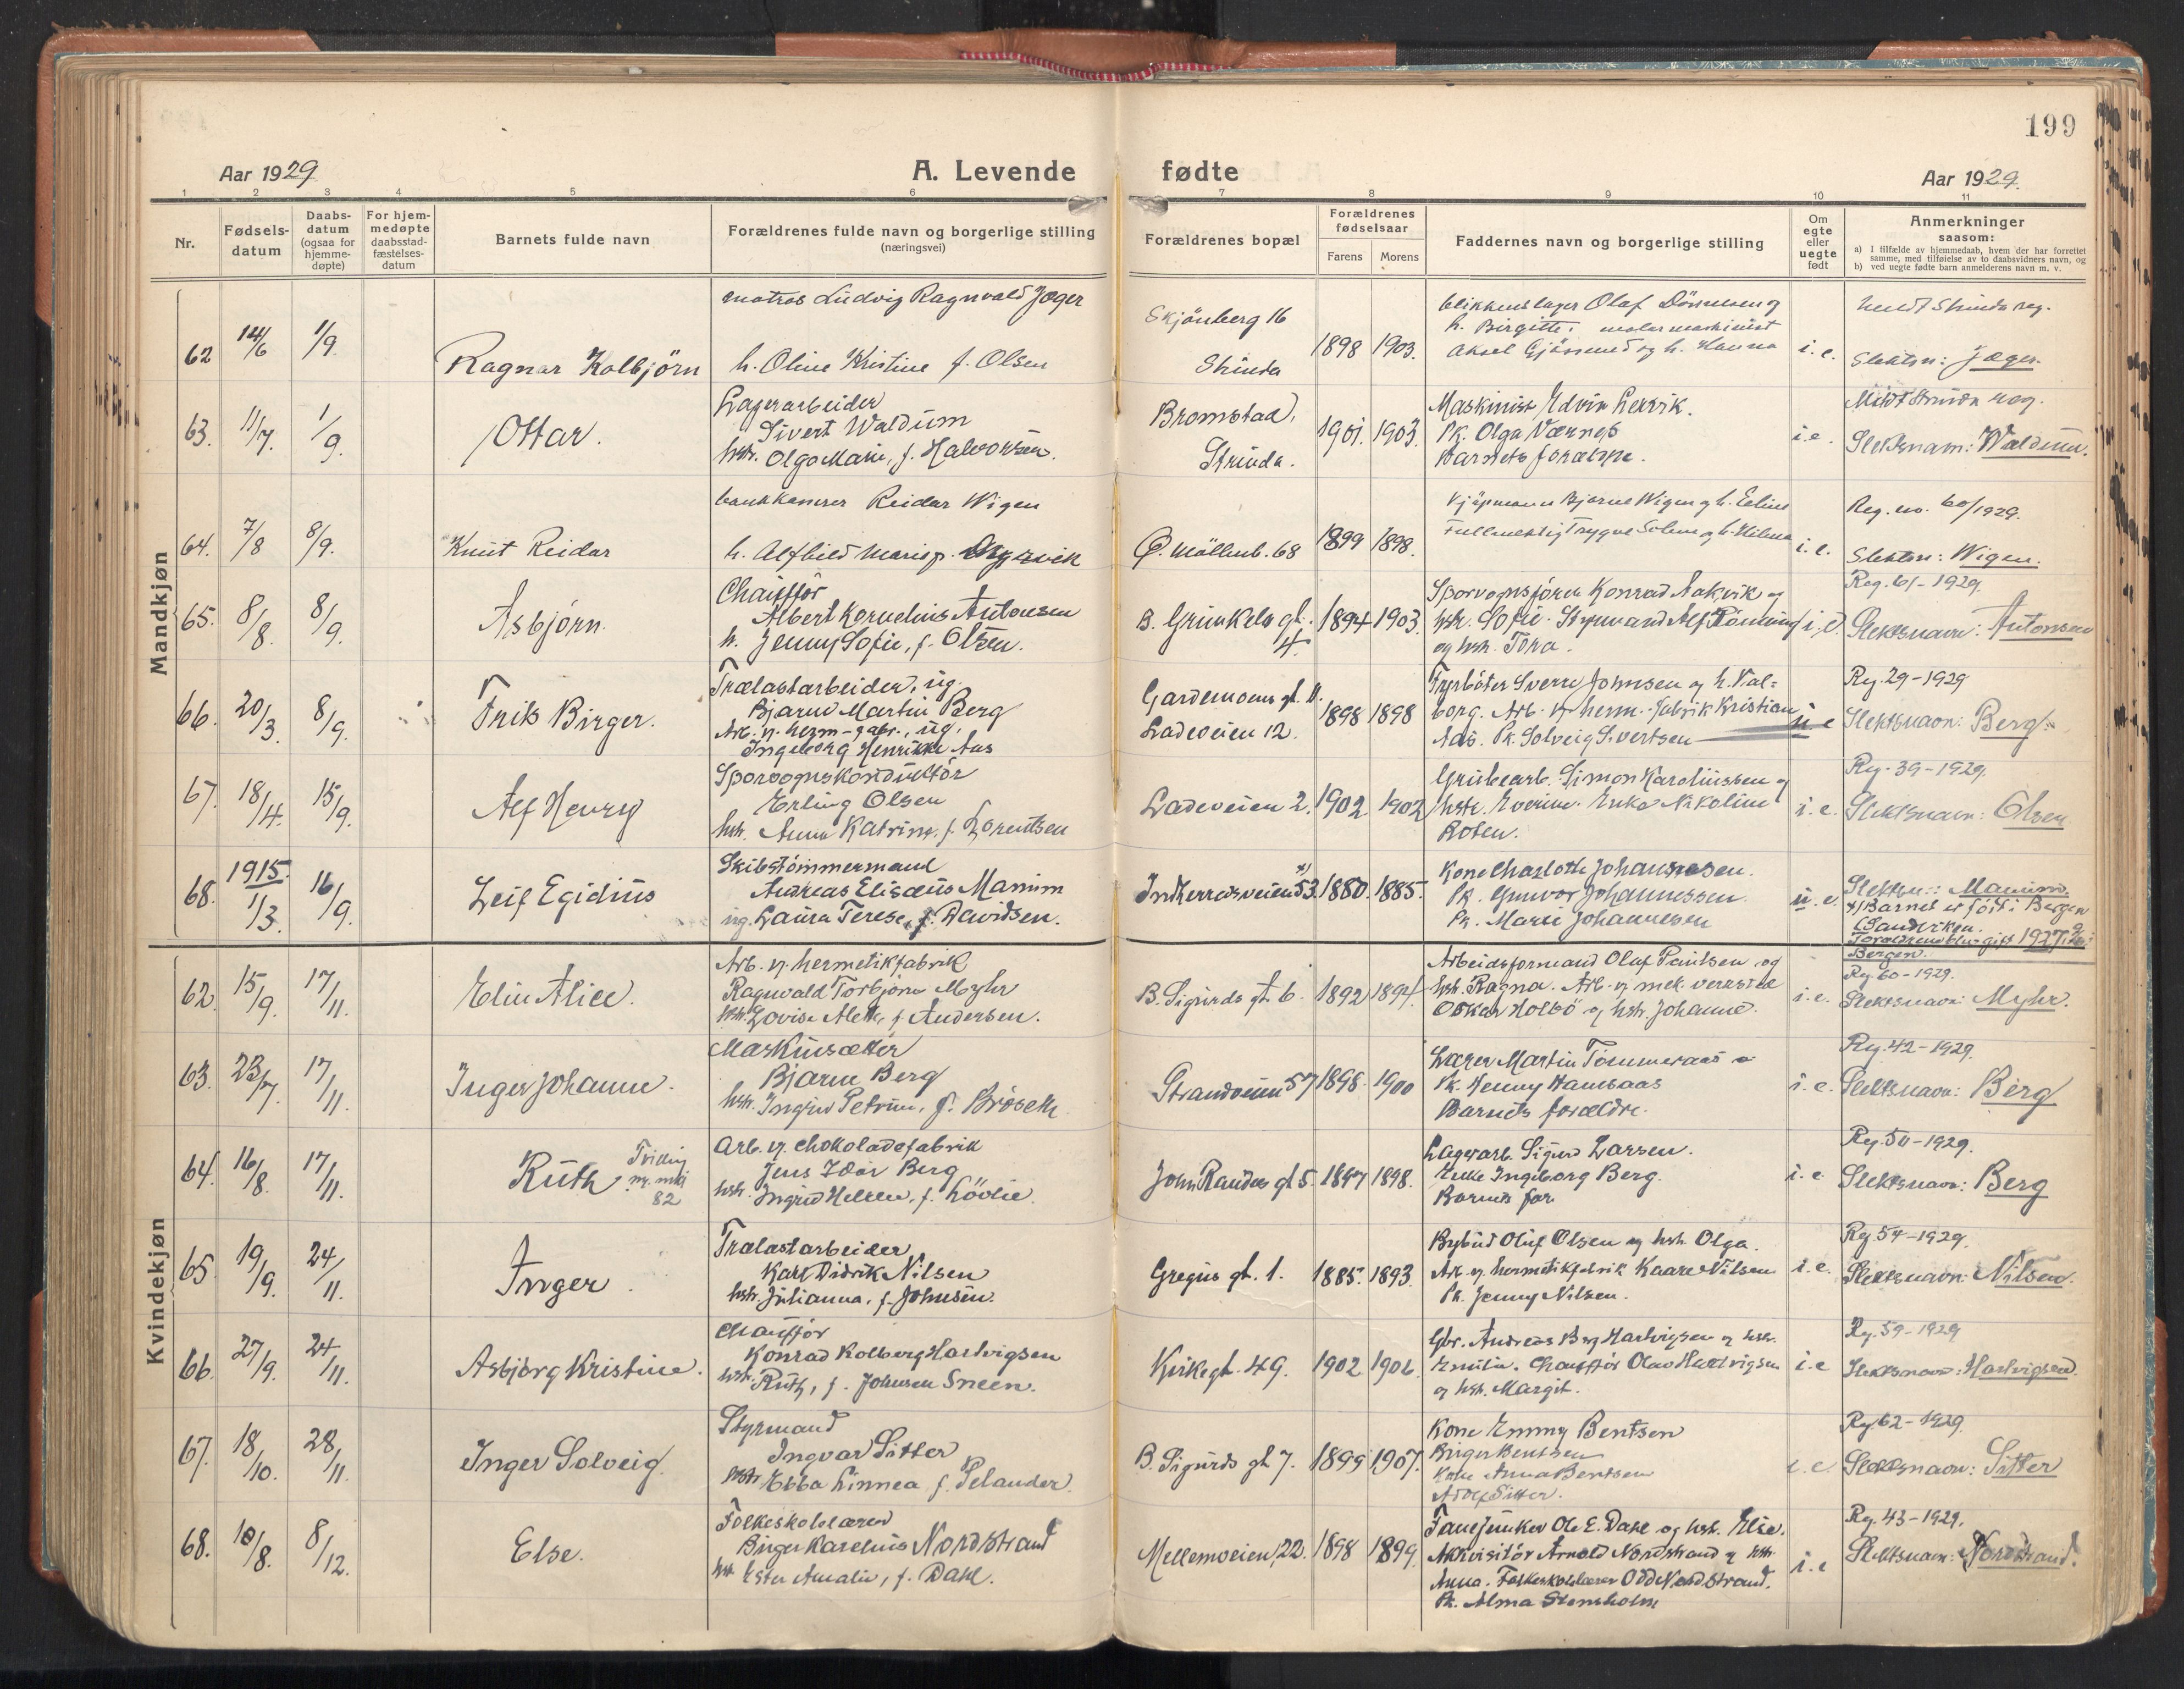 199
Aar 1929
A. Levende fødte
Aar 1929.
1 2 3 4 5 6 7 8 9 10 11
Nr.
Fødsels-
datum
Daabs-
datum
(ogsaa for
hjemme-
døpte)
For hjem-
medøpte
daabsstad-
fæstelses-
datum
Barnets fulde navn
Forældrenes fulde navn og borgerlige stilling
(næringsvei)
Forældrenes bopæl
Forældrenes
fødselsaar
Farens Morens
Faddernes navn og borgerlige stilling
Om
egte
eller
uegte
født
Anmerkninger
saasom:
a) I tilfælde av hjemmedaab, hvem der har forrettet
samme, med tilføielse av to daabsvidners navn, og
b) ved uegte fødte barn anmelderens navn m. v.
Mandkjøn
62 14/6 1/9. Ragnar Kolbjörn
matros Ludvig Ragnvald Jæger
h. Oline Kristine f. Olsen
Skjönberg 16
Strinda
1898 1903.
blikkenslager Olaf
h. Birgitte.
Aksel og h. Hanna
i. e.
meldt Strinda reg.
Slektsn: Jæger.
63. 11/7. 1/9. Ottar.
Lagerarbeider
Sivert Waldum
hstr. Olga Marie, f. Halvorsen.
Bromstad,
Strinda.
1901. 1903.
Maskinist Edvin Lervik.
Pk. Olga Værnes
Barnets forældre.
i. e.
Meldt Strinda reg.
Slektsnam: Waldum.
64. 7/8 8/9. Knut Reidar
bankkaserer Reidar Wigen
h. Alfhild Marie f.
Ø. Möllenb. 68
1899 1898.
Kjöpmann Bjarne Wigen og h. Eline
Fullmektig Trygve Solem og h. Hilma
i. e.
Reg. no. 60/1929.
Slektsn: Wigen.
65. 8/8. 8/9. Asbjørn.
Chauffør
Albert Kornelius Antonsen
h. Jenny Sofie, f. Olsen.
B. Grunkels gt.
4.
1894 1903.
Sporvognsfører Konrad Aakvik og
hstr. Sofie. Styrmand Alf Rönning
og hstr. Tora.
i. e.
Reg. 61 - 1929.
Slektsnavn: Antonsen
66. 20/3. 8/9. Friis Birger.
Trælastarbeider, ug.
Bjarne Martin Berg
Arb. v. herm-fabr., ug.
Ingeborg Henrikke Aas
Gardemoens gt. 11.
Ladeveien 12.
1898 1898
Fyrbøter Sverre Johnsen og h. Val=
borg. Arb. v. herm.-fabrik Kristian
Aas. Pk. Solveig Sivertsen
u. e
Reg. 29 - 1929
Slektsnavn: Berg.
67. 18/4. 15/9. Alf Henry
Sporvognskonduktör
Erling Olsen
hstr. Anna Katrine, f. Lorentsen
Ladeveien 2.
1902. 1902
Grubearb. Simon Karoliussen og
hstr. Everine. Enke Nikoline
Roten.
i. e.
Reg. 39 - 1929.
Slektsnavn: Olsen
68. 1915. 1/3. 16/9. Leif Egidius
Skibstømmermand
Andreas Elisæus Manum
ug. Laura Terese, f. Davidsen.
Indherredsveien 53. x)
1880. 1885.
Kone Charlotte Johannesen.
Pk. Gunvor Johannessen.
Pk. Marie Johannesen
u. e.
Slektsn.: Manum.
x) Barnet er født i Bergen
(Sandviken.
Forældrene blev gift 1927
Bergen.
Kvindekjøn
62. 15/9. 17/11. Elin Alice.
Arb. v. hermetikfabrik
Ragnvald Torbjørn Myhr
hstr. Lovise Alette, f. Andersen.
B. Sigurds gt. 6.
1892 1894.
Arbeidsformand Olaf Paulsen og
hstr. Ragna. Arb. v. mek. verksted
Oskar Holbö og hstr. Johanne.
i. e.
Reg. 60 - 1929.
Slektsnavn: Myhr.
63. 23/7. 17/11. Inger Johanne.
Maskinsætter
Bjarne Berg
hstr. Ingrid Petrine, f. Brøseth
Strandveien 57
1898. 1900
Lærer Martin Tømmeraas
Pk. Henny Hamsaas
Barnets forældre.
i. e.
Reg. 42 - 1929.
Slektsnavn: Berg
64. 16/8. 17/11. Ruth Tvilling
m. mk
82
Arb. v. chokoladefabrik
Jens Idar Berg
hstr. Ingrid Helene, f. Lövlie.
John Randers gt 5.
1897 1898.
Lagerarb. Sigurd Larsen.
Enke Ingeborg Berg.
Barnets far
i. e
Reg. 50 - 1929.
Slektsnavn: Berg
65. 19/9. 24/11. Inger.
Trælastarbeider
Karl Didrik Nilsen
hstr. Julianna, f. Johnsen.
Gregus gt. 1.
1885. 1893.
Bybud Oluf Olsen og hstr. Olga.
Arb. v. hermetikfabrik Kaare Nilsen
Pk. Jenny Nilsen.
i. e.
Reg. 54 - 1929.
Slektsnavn: Nilsen.
66. 27/9. 24/11. Asbjørg Kristine.
Chauffør
Konrad Kolberg Hartvigsen
hstr. Ruth, f. Johnsen Sneen.
Kirkegt. 49.
1902 1902.
Gbr. Andreas Berg Hartvigsen og hstr.
Emilie. Chauffør Olav Hartvigsen
og hstr. Margit.
i. e
Reg. 59 - 1929
Slektsnavn: Hartvigsen.
67. 18/10. 28/11. Inger Solveig.
Styrmand
Ingvar Sitter
hstr. Ebba Linnea, f. Pelander.
B. Sigurds gt 7.
1899 1907.
Kone Emmy Bentsen
Birger Bentsen
Kone Anna Bentsen
Adolf Sitter.
i. e.
Reg 62 - 1929.
Slektsnavn: Sitter
68. 10/8. 8/12. Else.
Folkeskolelærer
Birger Karelius Nordstrand
hstr Ester Amalie, f. Dahl.
Mellemveien 22.
1898 1899.
Fanejunker Ole E. Dahl og hstr. Else.
Akkvisitör Arnold Nordstrand og hstr.
Anna. Folkeskolelærer Odd Nordstrand.
Pk. Alma Stensholm
i. e
Reg. 43 - 1929.
Slektsnavn: Nordstrand.